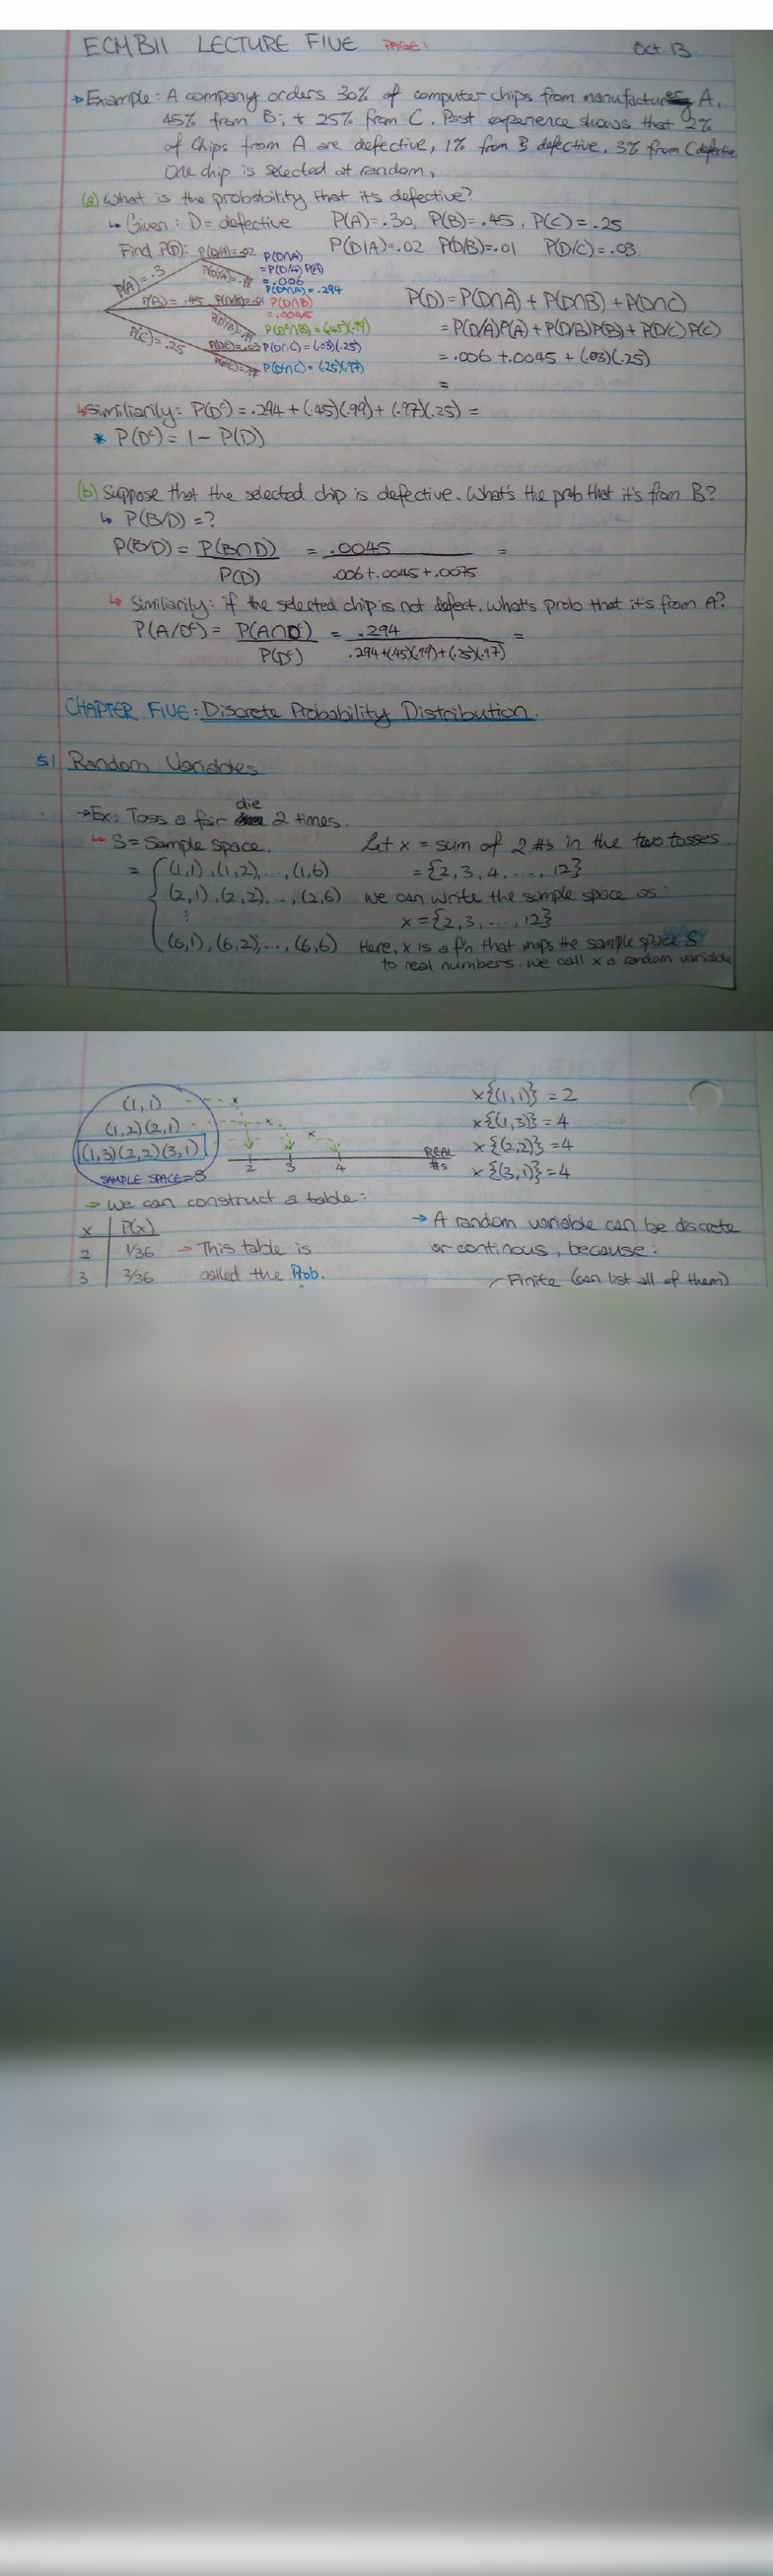 ECMB11 LECTURE FIVE PAGE 1 Oct. 13
Example: A company orders 30% of computer chips from manufacturer A,
45% from B; + 25% from C. Past experience shows that 2%
of chips from A are defective, 1% from B defective, 3% from C defective
One chip is selected at random,
(a) What is the probability that it's defective?
↳ Given: D = defective P(A)=.30, P(B)=.45, P(C)=.25
Find P(D): P(D/A)=.02 P(D∩A) P(D|A)=.02 P(D/B)=.01 P(D/C)=.03
=P(D/A)P(A)
=.006
P(A)=.3
P(Dᶜ∩A)=.294
P(B)=.45 P(D/B)=.01 P(D∩B) P(D)=P(D∩A)+P(D∩B)+P(D∩C)
=.0045
P(Dᶜ∩B)=(.45)(.99) =P(D/A)P(A)+P(D/B)P(B)+P(D/C)P(C)
P(C)=.25 P(D/C)=.03 P(D∩C)=(.03)(.25) =.006+.0045+(.03)(.25)
P(Dᶜ∩C)=(.25)(.97)
=
↳ Similiarily: P(Dᶜ)=.294+(.45)(.99)+(.97)(.25)=
* P(Dᶜ)=1-P(D)
(b) Suppose that the selected chip is defective. What's the prob that it's from B?
↳ P(B/D)=?
P(B/D)=P(B∩D) = .0045 =
P(D) .006+.0045+.0075
↳ Similiarily: if the selected chip is not defect, what's prob that it's from A?
P(A/Dᶜ)=P(A∩Dᶜ) = .294 =
P(Dᶜ) .294+(.45)(.99)+(.25)(.97)
CHAPTER FIVE: Discrete Probability Distribution.
5.1 Random Variables
→Ex: Toss a fair die 2 times.
↳ S=Sample space. Let x = sum of 2 #s in the two tosses.
= {(1,1),(1,2),...,(1,6) ={2,3,4,...,12}
(2,1),(2,2),...,(2,6) we can write the sample space as:
⋮ x={2,3,...,12}
(6,1),(6,2),...,(6,6) Here, x is a f'n that maps the sample space S
to real numbers. we call x a random variable
(1,1) x{(1,1)}=2
(1,2)(2,1) x{(1,3)}=4
(1,3)(2,2)(3,1) x{(2,2)}=4
SAMPLE SPACE=S 2 3 4 REAL #s x{(3,1)}=4
→ we can construct a table:
x P(x) → A random variable can be discrete
2 1/36 → This table is or continous, because:
3 2/36 called the Prob. Finite (can list all of them)